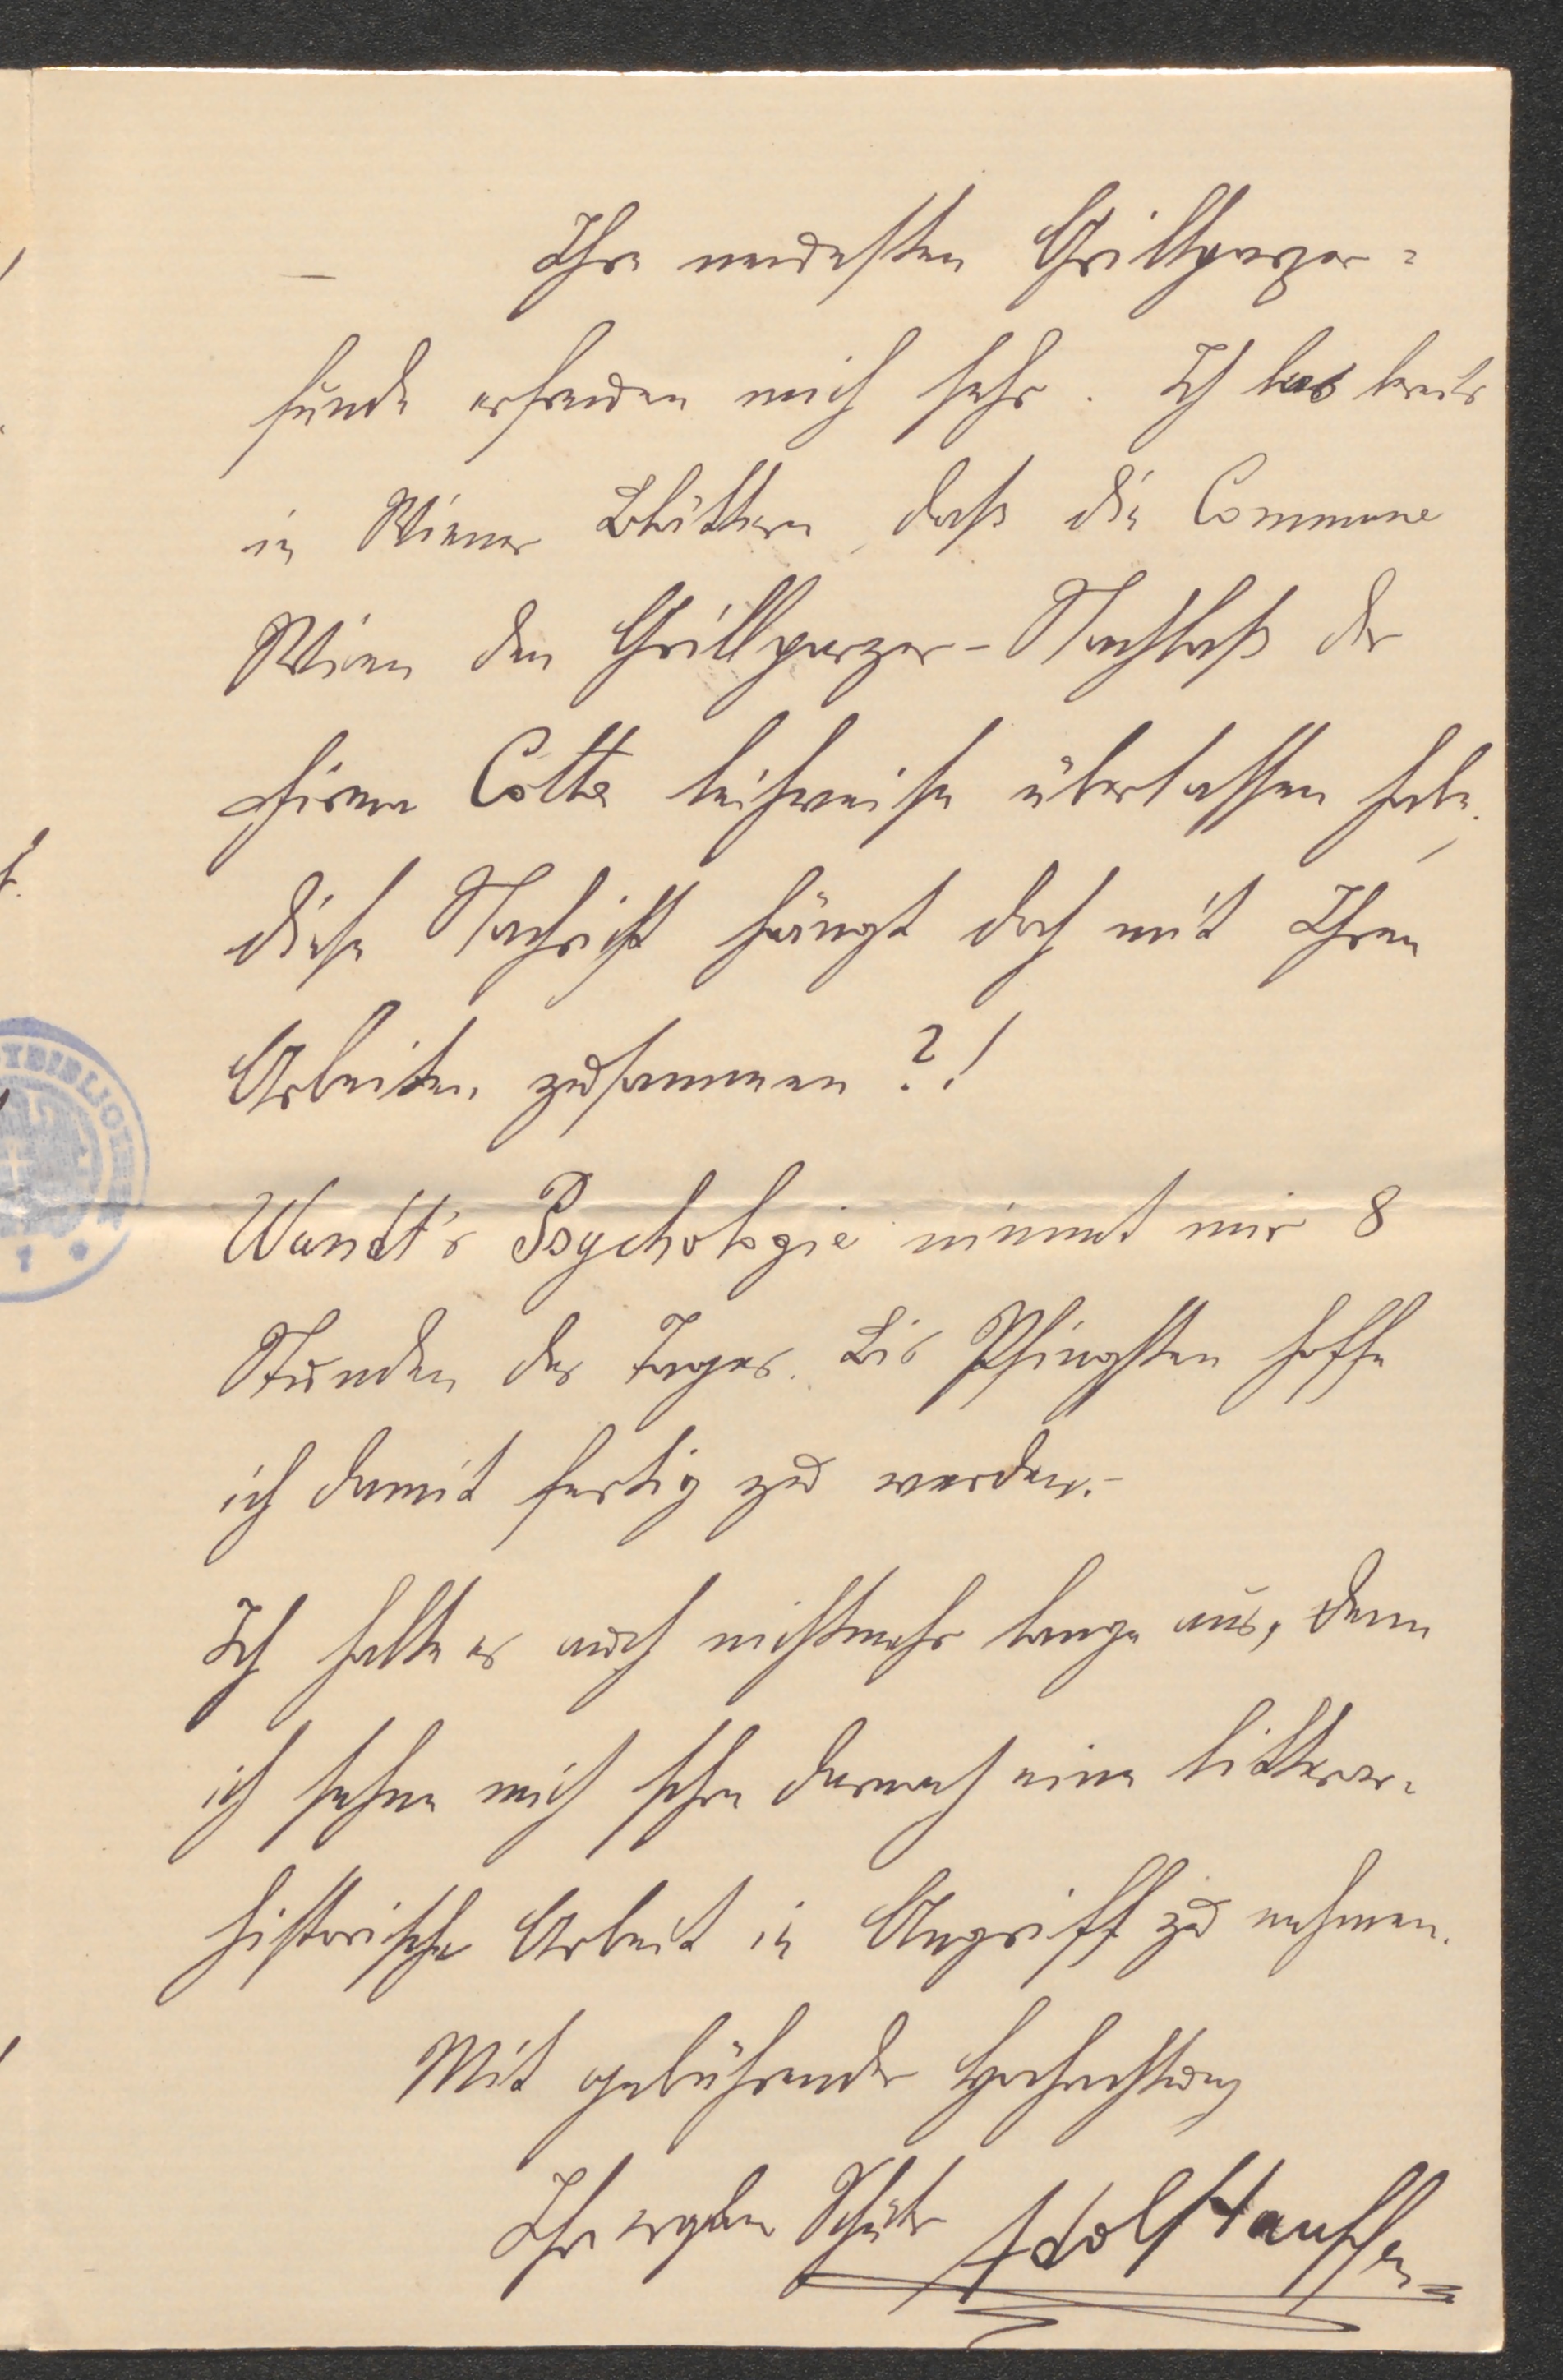 – Ihre neuesten Grillparzer-
funde erfreuen mich sehr. Ich las bereits
in Wiener Blättern, daß die Commune
Wien den Grillparzer-Nachlaß der
Firma Cotta leihweise überlassen habe,
diese Nachricht hängt doch mit Ihren
Arbeiten zusammen?!
Wundt's Psychologie nimmt mir 8
Stunden des Tages. Bis Pfingsten hoffe
ich damit fertig zu werden.–
Ich halte es auch nichtmehr lange aus, denn
ich sehne mich sehr darnach eine litterar-
historische Arbeit in Angriff zu nehmen.
Mit gebührender Hochachtung
Ihr ergebener Schüler Adolf Hauffen